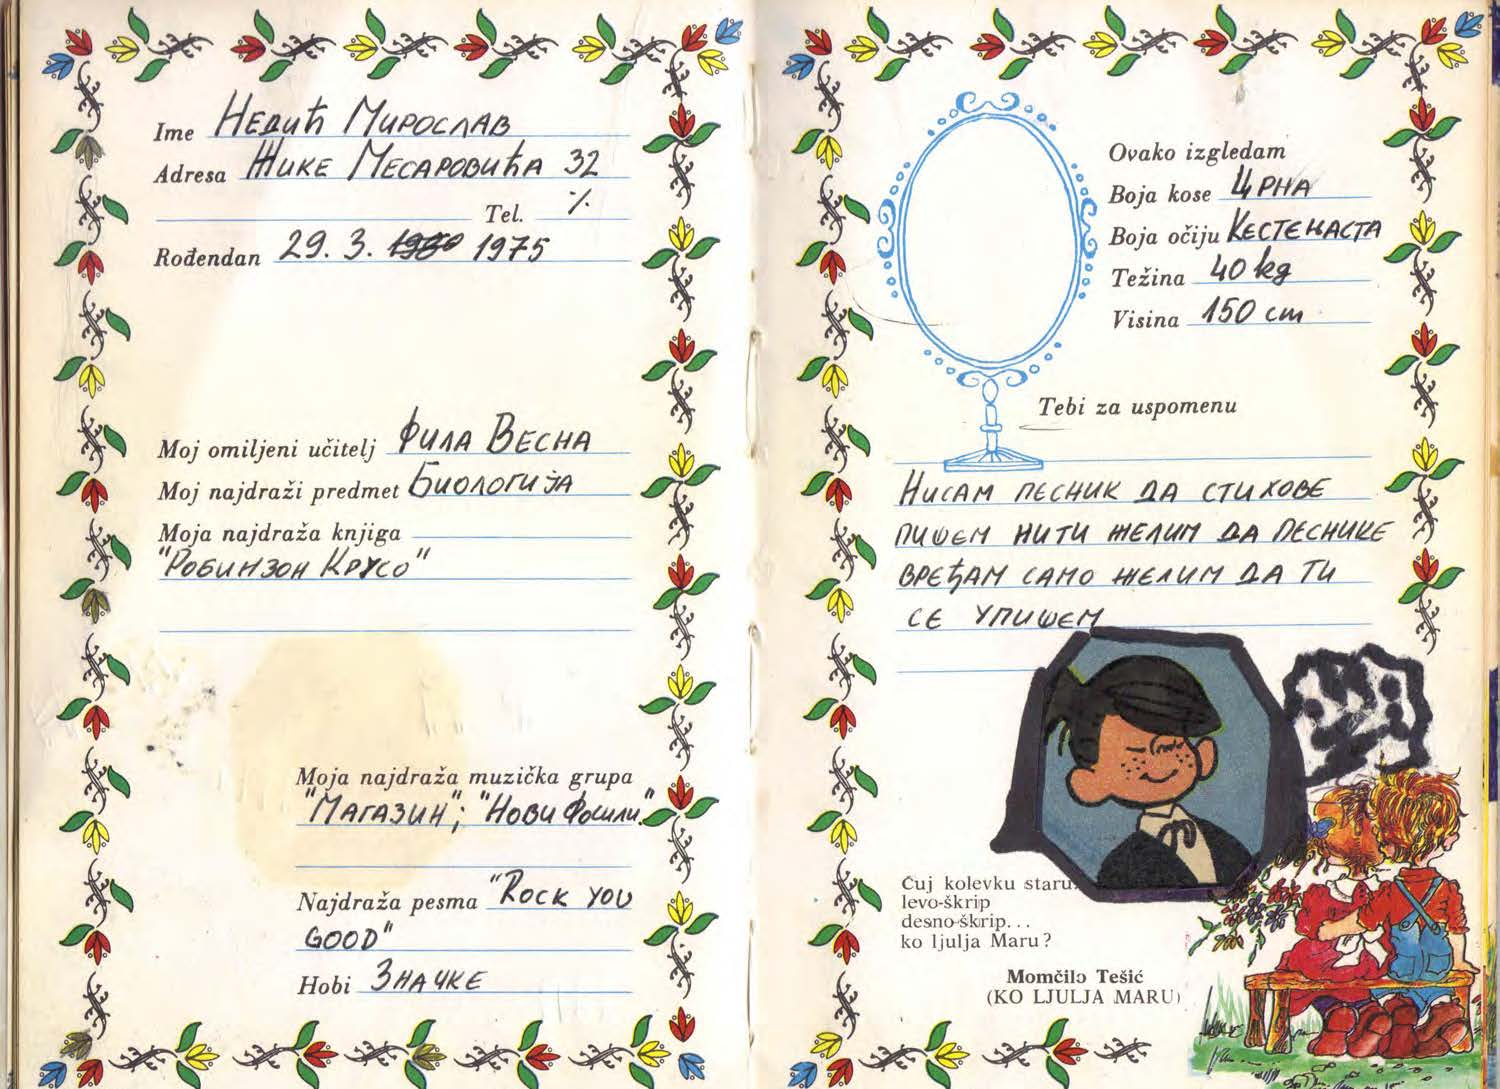 Ime Недић Мирослав
Adresa Жике Месаровића 32
Tel. ·/.
Rođendan 29. 3. 1975
Moj omiljeni učitelj Фила Весна
Moj najdraži predmet Биологија
Moja najdraža knjiga
"Робинзон Крусо"
Moja najdraža muzička grupa
"Магазин"; "Нови Фосили"
Najdraža pesma "Rock you
good"
Hobi Значке
Ovako izgledam
Boja kose Црна
Boja očiju Кестењаста
Težina 40 kg
Visina 150 cm
Tebi za uspomenu
Нисам песник да стихове
пишем нити желим да песнике
вређам само желим да ти
се упишем
Čuj kolevku staru:
levo-škrip
desno-škrip...
ko ljulja Maru?
Momčilo Tešić
(KO LJULJA MARU)